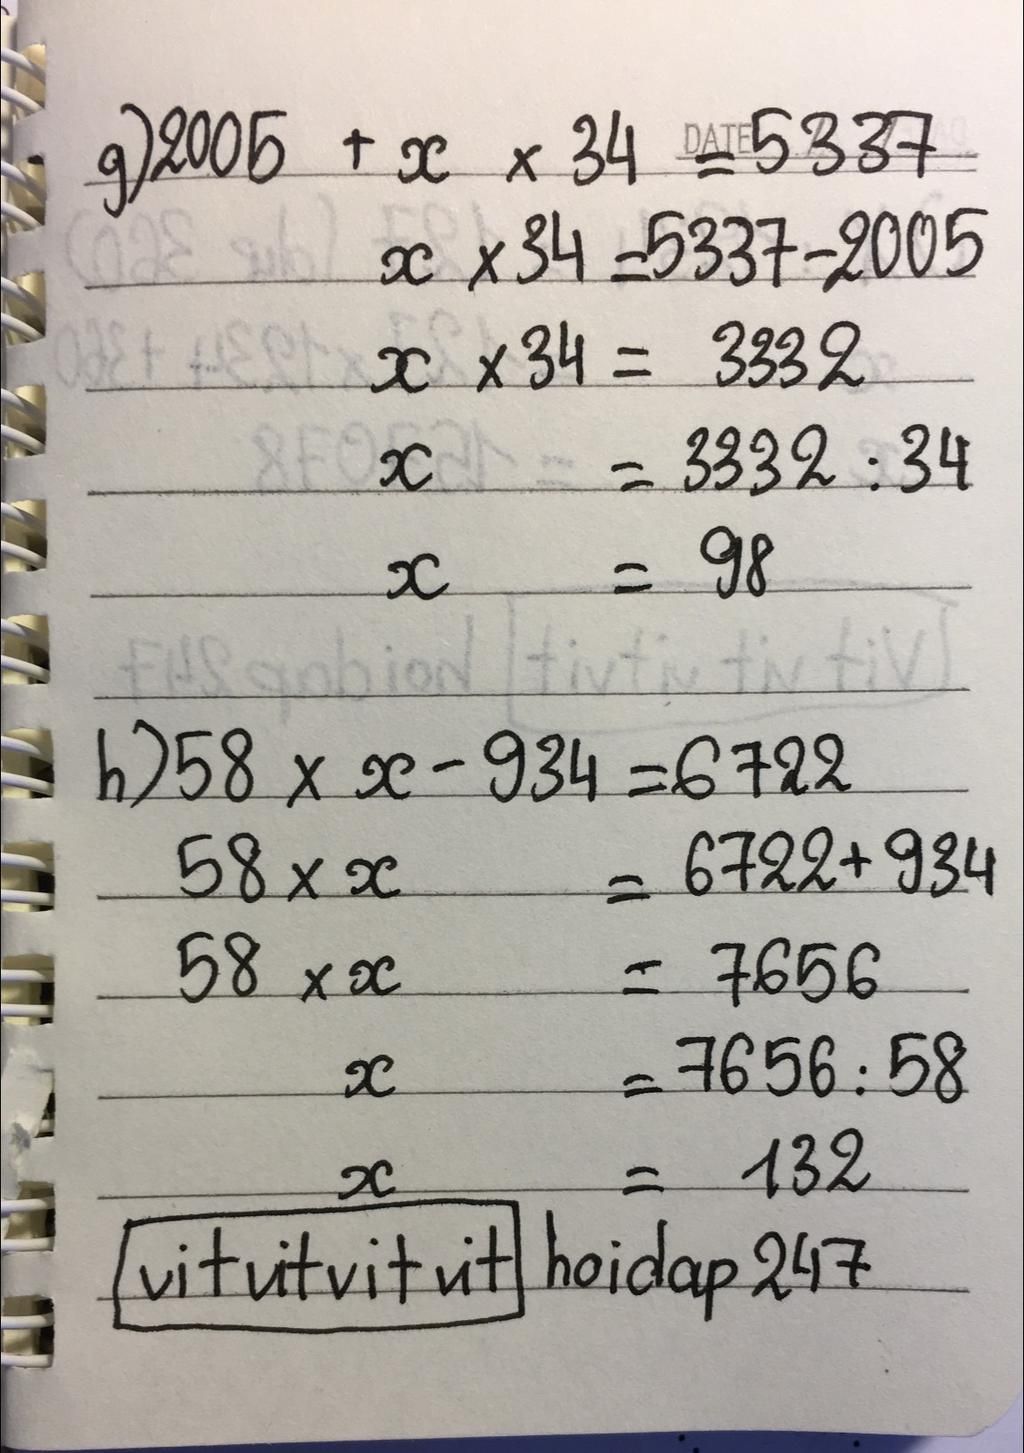 g) 2005 + x × 34 = 5337
DATE
x × 34 = 5337 - 2005
x × 34 = 3332
x = 3332 : 34
x = 98
h) 58 × x - 934 = 6722
58 × x = 6722 + 934
58 × x = 7656
x = 7656 : 58
x = 132
vitvitvitvit hoidap247